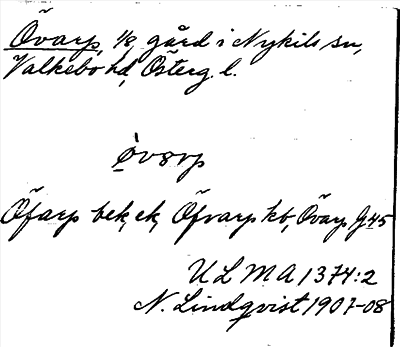 Övarp, 1/8, gård i Nykils sn,
Valkebo hd, Österg. l.
Öfarp bek, ek, Öfvarp kb, Övarp G 45
ULMA 1374:2
N. Lindqvist 1907-08